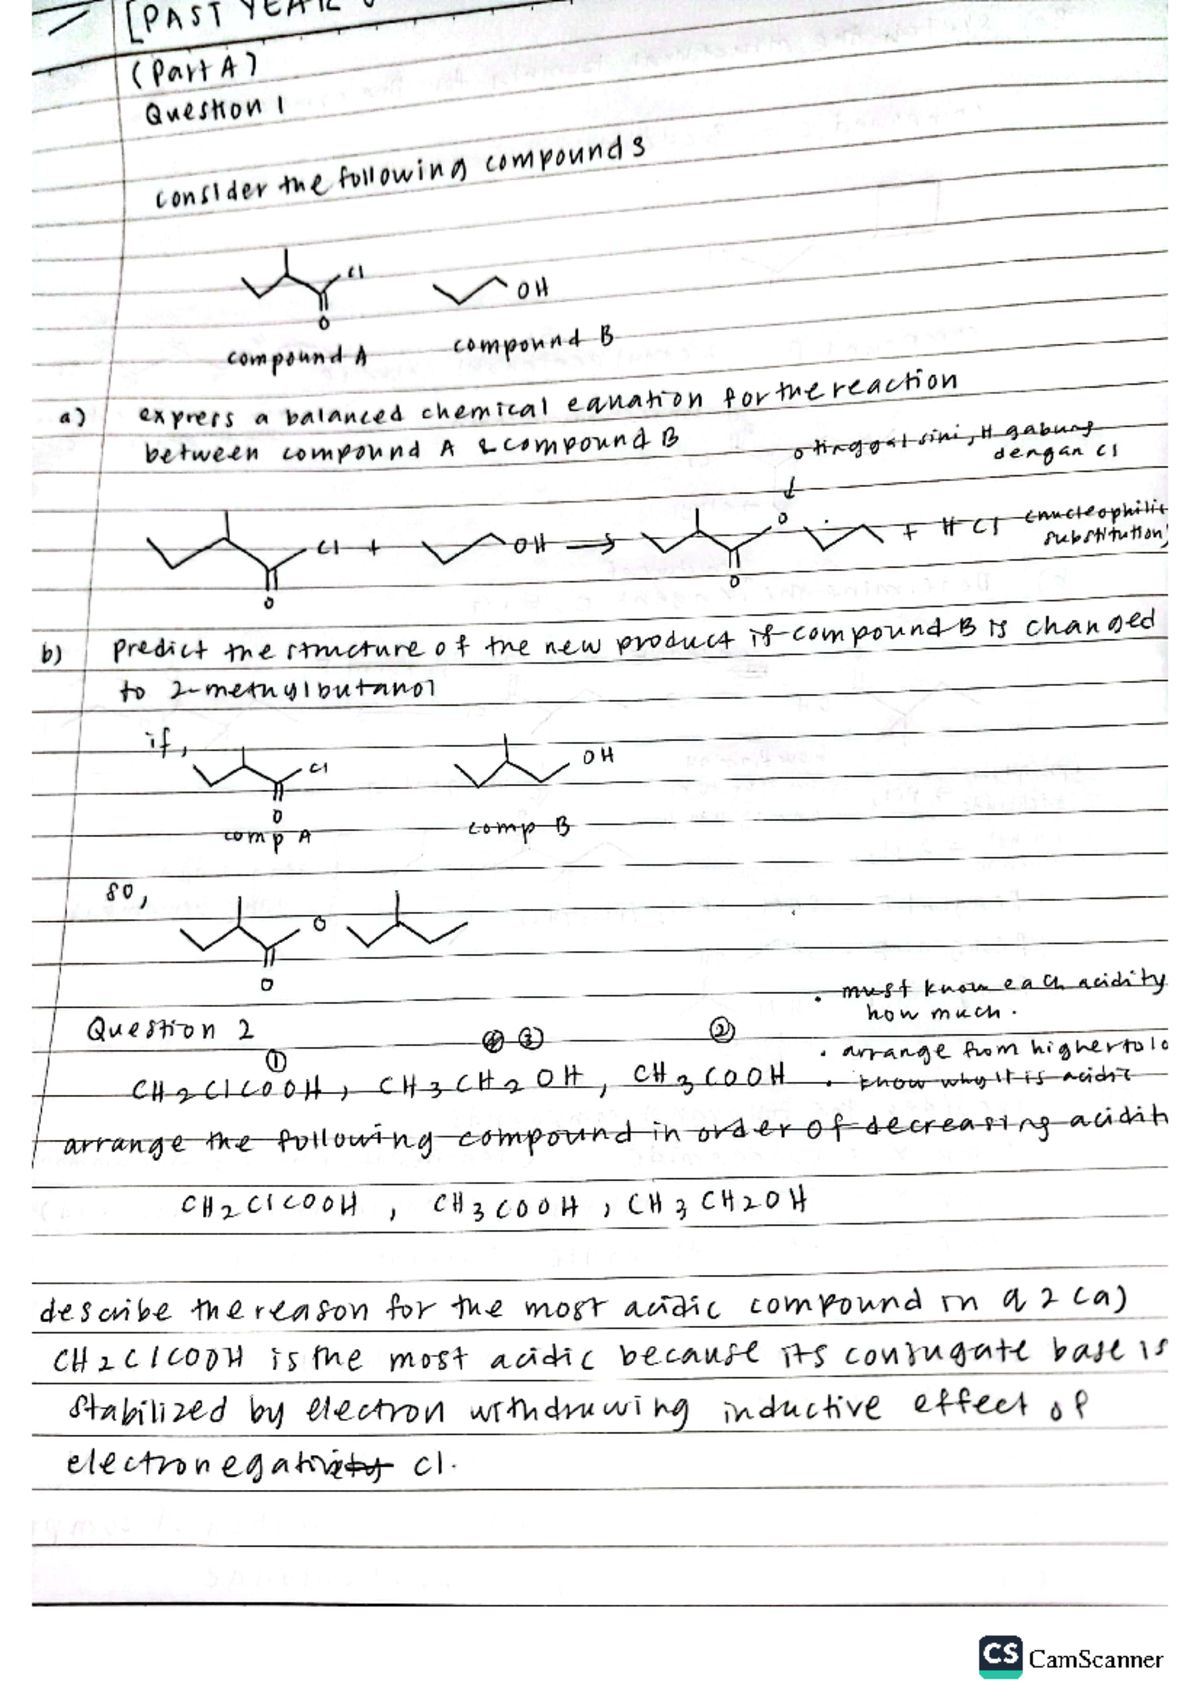 [PAST YEAR
(Part A)
Question 1
consider the following compounds
Cl
O
OH
compound A
compound B
a) express a balanced chemical equation for the reaction
between compound A & compound B
O tinggal sini, H gabung
dengan Cl
Cl + OH → O + HCl (nucleophilic
substitution)
O O
b) predict the structure of the new product if compound B is changed
to 2-methylbutanol
if,
Cl OH
O
comp A comp B
so,
O
O
• must know each acidity
how much.
Question 2
① ③ ②
• arrange from higher to lo
CH2ClCOOH, CH3CH2OH, CH3COOH
• know why it is acidic
arrange the following compound in order of decreasing acidit
CH2ClCOOH, CH3COOH, CH3CH2OH
describe the reason for the most acidic compound in Q2(a)
CH2ClCOOH is the most acidic because its conjugate base is
stabilized by electron withdrawing inductive effect of
electronegativity Cl.
CS CamScanner